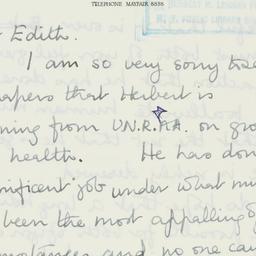 TELEPHONE MAYFAIR 8838
Edith.
I am so very sorry to see
papers that Herbert is
ning from UN.R.R.A. on gro
health. He has don
nificent job under what mu
been the most appalling
mstances and no one cou